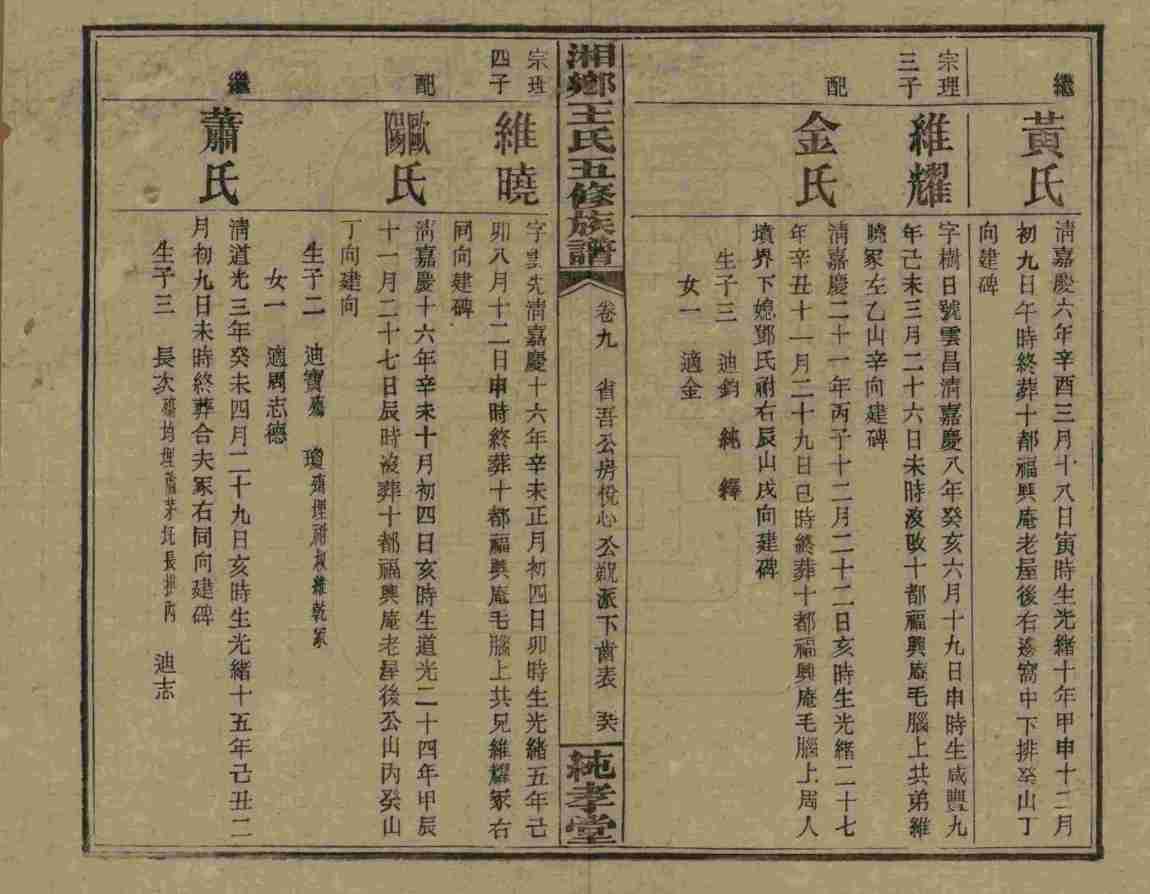 繼
黃氏
淸嘉慶六年辛酉三月十八日寅時生光緒十年甲申十二月
初九日午時終葬十都福興庵老屋後右邊窩中下排癸山丁
向建碑
宗理
三子
維耀
字樹日號雲昌淸嘉慶八年癸亥六月十九日申時生咸豐九
年己未三月二十六日未時歿改十都福興庵毛腦上共弟維
曉冢左乙山辛向建碑
配
金氏
淸嘉慶二十一年丙子十二月二十二日亥時生光緒二十七
年辛丑十一月二十九日巳時終葬十都福興庵毛腦上周人
墳界下媳鄧氏祔右辰山戌向建碑
生子三 迪鈞 純 鐸
女一 適金
湘鄉王氏五修族譜
卷九 省吾公房悅心公覲派下齒表
純孝堂
宗理
四子
維曉
字雲先淸嘉慶十六年辛未正月初四日卯時生光緒五年己
卯八月十二日申時終葬十都福興庵毛腦上共兄維耀冢右
同向建碑
配
歐陽氏
淸嘉慶十六年辛未十月初四日亥時生道光二十四年甲辰
十一月二十七日辰時歿葬十都福興庵老屋後公山丙癸山
丁向建向
生子二 迪寶殤 瓊殤埋祔叔維乾冢
女一 適周志德
繼
蕭氏
淸道光三年癸未四月二十九日亥時生光緒十五年己丑二
月初九日未時終葬合夫冢右同向建碑
生子三 長次殤均埋舊茅托長排內 迪志